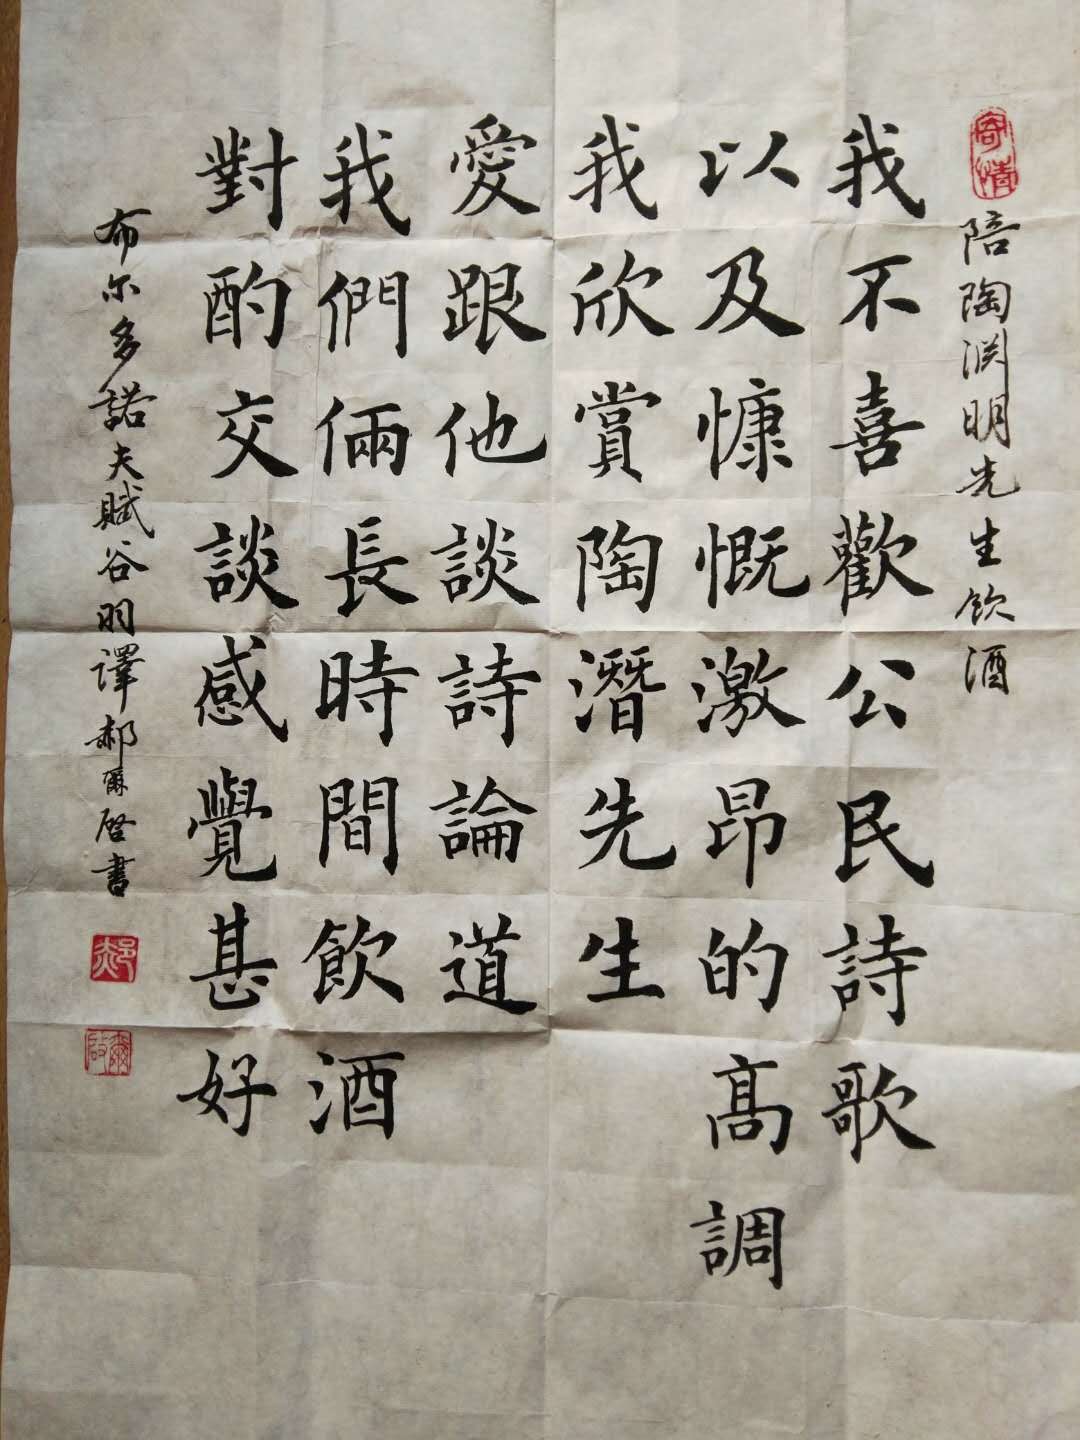 寄情
陪陶渊明先生飲酒
我不喜歡公民詩歌
以及慷慨激昂的高調
我欣賞陶潛先生
愛跟他談詩論道
我們倆長時間飲酒
對酌交談感覺甚好
布尔多諾夫賦谷羽譯郝爾啓書
郝
爾啟